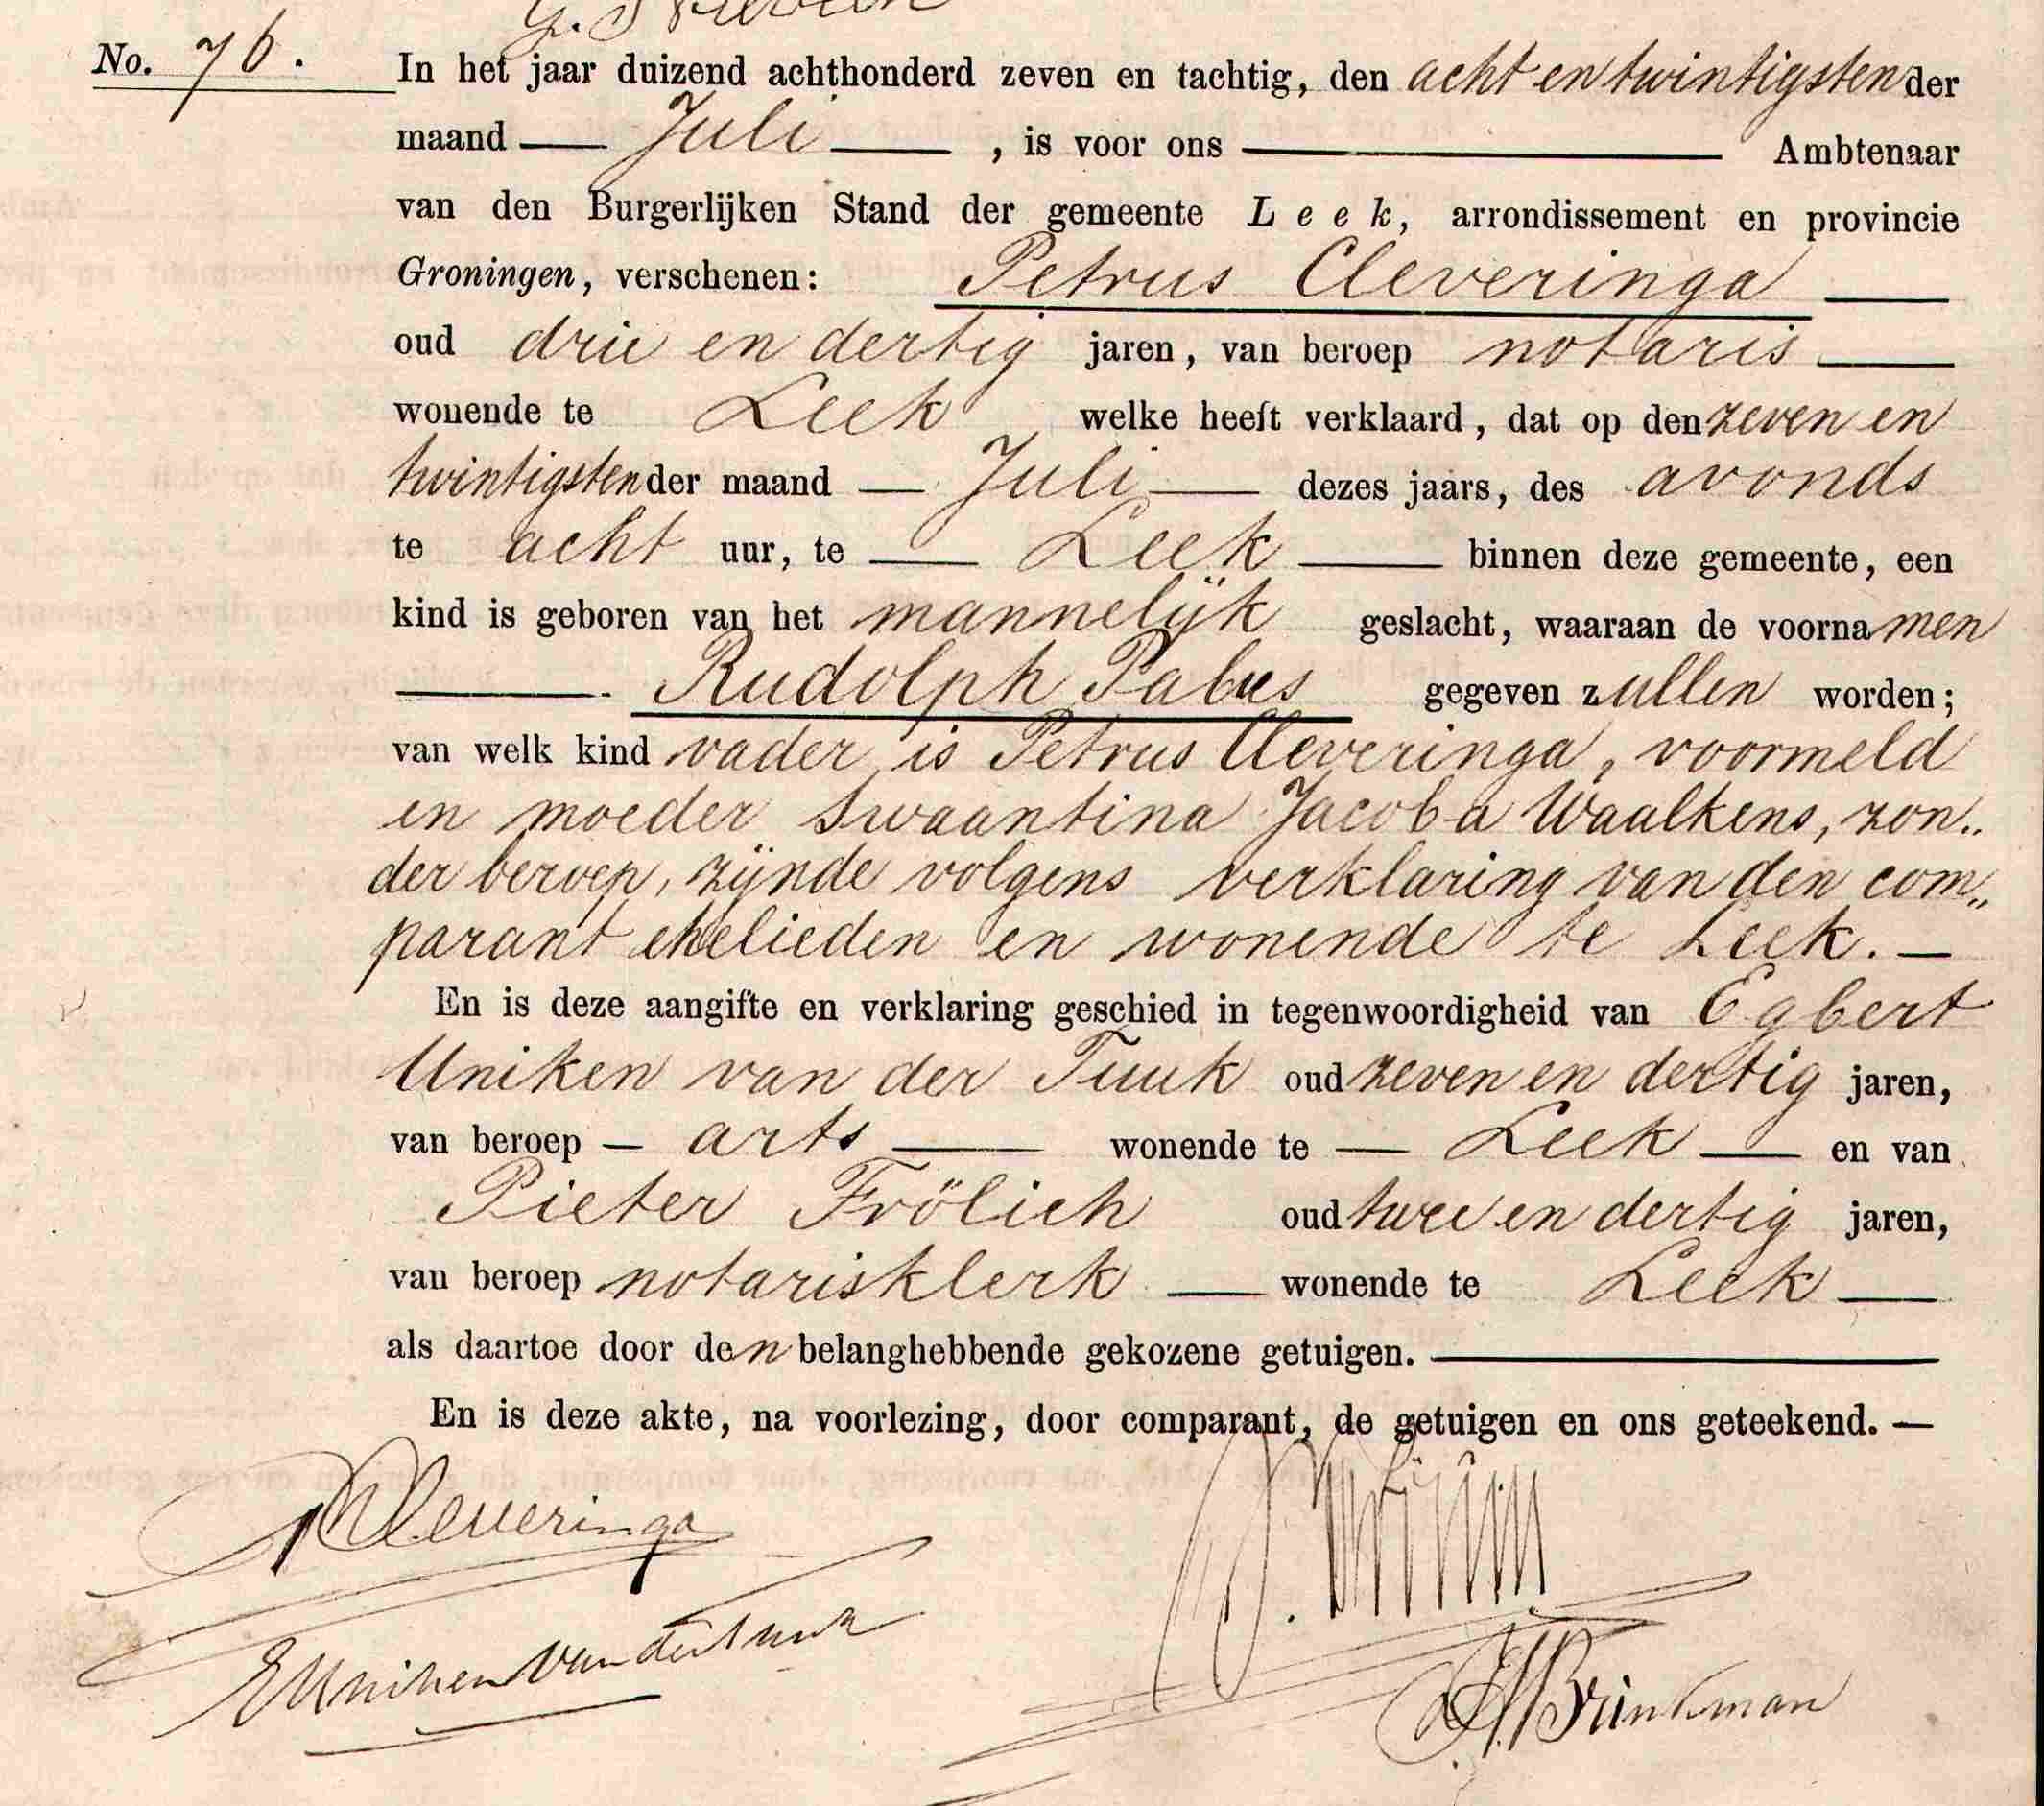 No. 76.
In het jaar duizend achthonderd zeven en tachtig, den acht en twintigsten der
maand Juli, is voor ons Ambtenaar
van den Burgerlijken Stand der gemeente Leek, arrondissement en provincie
Groningen, verschenen: Petrus Cleveringa
oud drie en dertig jaren, van beroep notaris
wonende te Leek welke heeft verklaard, dat op den zeven en
twintigsten der maand Juli dezes jaars, des avonds
te acht uur, te Leek binnen deze gemeente, een
kind is geboren van het mannelijk geslacht, waaraan de voornamen
Rudolph Pabus gegeven zullen worden;
van welk kind vader is Petrus Cleveringa, voormeld
en moeder Swaantina Jacoba Waalkens, zon„
der beroep, zijnde volgens verklaring van den com„
parant ehelieden en wonende te Leek. —
En is deze aangifte en verklaring geschied in tegenwoordigheid van Egbert
Uniken van der Tuuk oud zeven en dertig jaren,
van beroep — arts — wonende te — Leek — en van
Pieter Frölich oud twee en dertig jaren,
van beroep notarisklerk — wonende te Leek —
als daartoe door den belanghebbende gekozene getuigen. —
En is deze akte, na voorlezing, door comparant, de getuigen en ons geteekend. —
Cleveringa
EUniken van der Tuuk
Brinkman